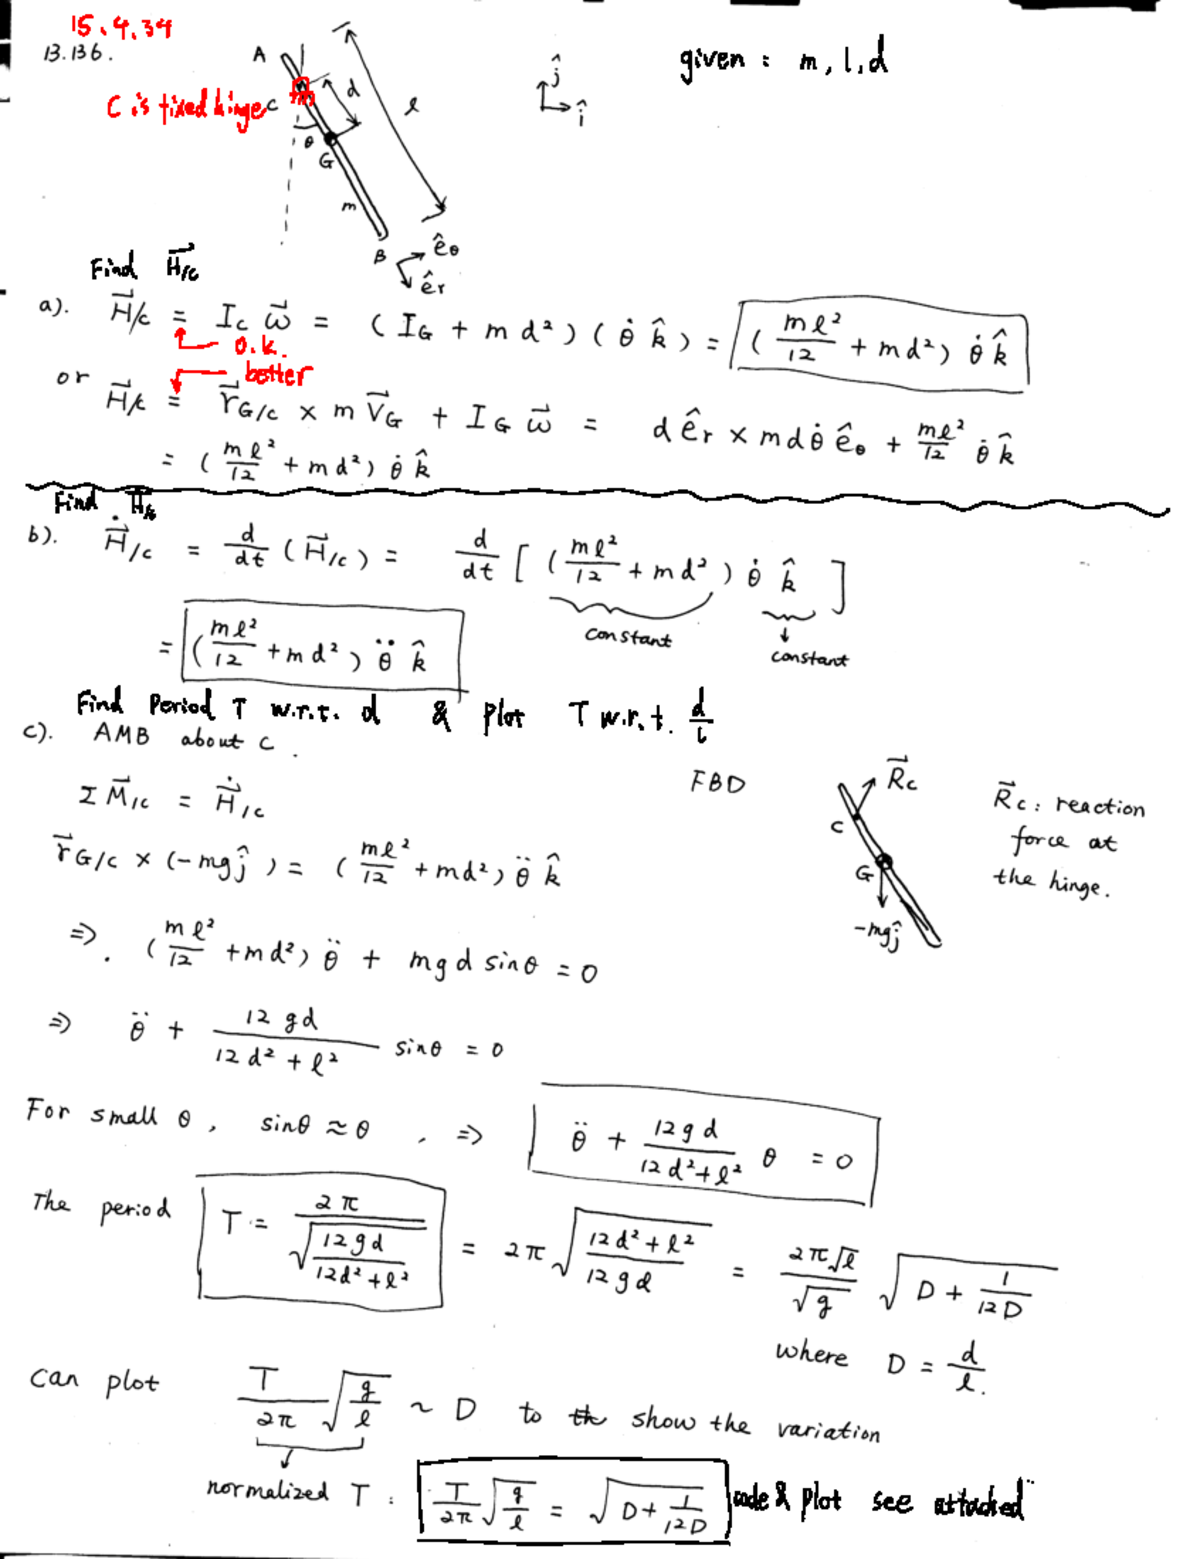 15.4.34
13.136.
given : m, l, d
A
C is fixed hinge
C
d
l
θ
G
m
B
ĵ
î
ê_θ
ê_r
Find H⃗/c
a). H⃗/c = I_c ω⃗ = ( I_G + m d² ) ( θ̇ k̂ ) = ( mℓ²/12 + m d² ) θ̇ k̂
o.k.
better
or H⃗/c = r⃗_G/c × m V⃗_G + I_G ω⃗ = d ê_r × m d θ̇ ê_θ + mℓ²/12 θ̇ k̂
= ( mℓ²/12 + m d² ) θ̇ k̂
Find Ḣ⃗/c
b). Ḣ⃗/c = d/dt ( H⃗/c ) = d/dt [ ( mℓ²/12 + m d² ) θ̇ k̂ ]
constant
constant
= ( mℓ²/12 + m d² ) θ̈ k̂
Find Period T w.r.t. d & plot T w.r.t. d/l
c). AMB about C .
Σ M⃗/c = Ḣ⃗/c
FBD
R⃗c
C
G
-mgĵ
R⃗c : reaction
force at
the hinge.
r⃗_G/c × (-mgĵ ) = ( mℓ²/12 + md² ) θ̈ k̂
⇒. ( mℓ²/12 + md² ) θ̈ + mgd sinθ = 0
⇒ θ̈ + 12 gd / (12 d² + ℓ²) sinθ = 0
For small θ , sinθ ≈ θ , ⇒ θ̈ + 12 g d / (12 d² + ℓ²) θ = 0
The period T = 2π / √(12gd / (12d² + ℓ²)) = 2π √((12d² + ℓ²) / 12gd) = 2π√ℓ / √g √(D + 1/12D)
where D = d/ℓ.
Can plot T/2π √(g/ℓ) ~ D to th show the variation
normalized T : T/2π √(g/ℓ) = √(D + 1/12D) code & plot see attached